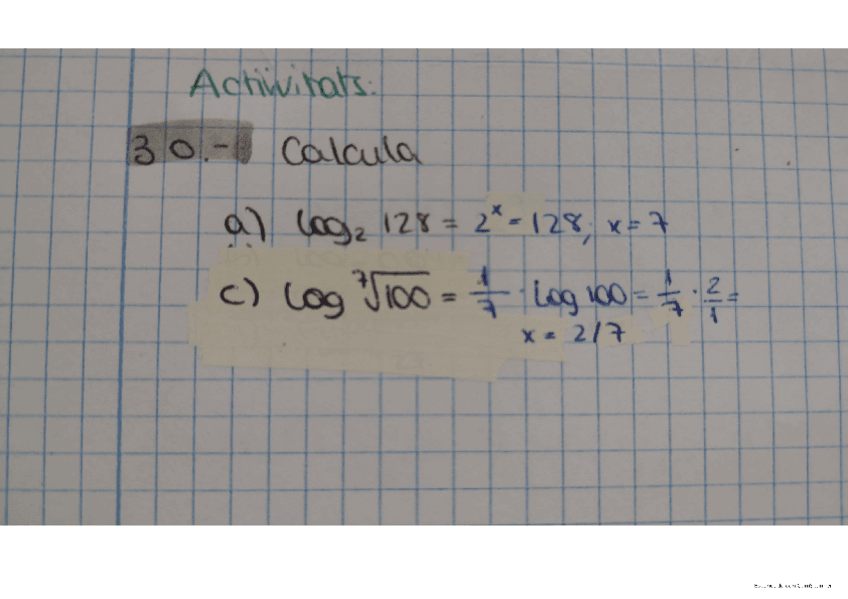 Activitats:
30.- Calcula
a) log₂ 128 = 2ˣ = 128; x = 7
c) log ⁷√100 = 1/7 · log 100 = 1/7 · 2/1 =
x = 2/7